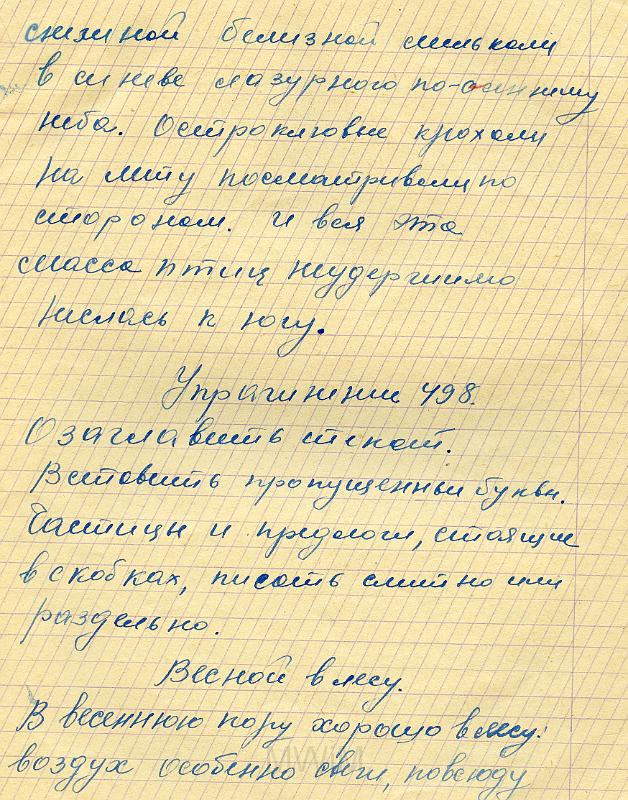 снежной белизной мелькали
в синеве лазурного по-осеннему
неба. Остроклювые крохали
на лету посматривали по
сторонам. И вся эта
масса птиц неудержимо
неслась к югу.
Упражнение 498.
Озаглавить текст.
Вставить пропущенные буквы.
Частицы и предлоги, стоящие
в скобках, писать слитно или
раздельно.
Весной в лесу.
В весеннюю пору хорошо в лесу:
воздух особенно свеж, повсюду